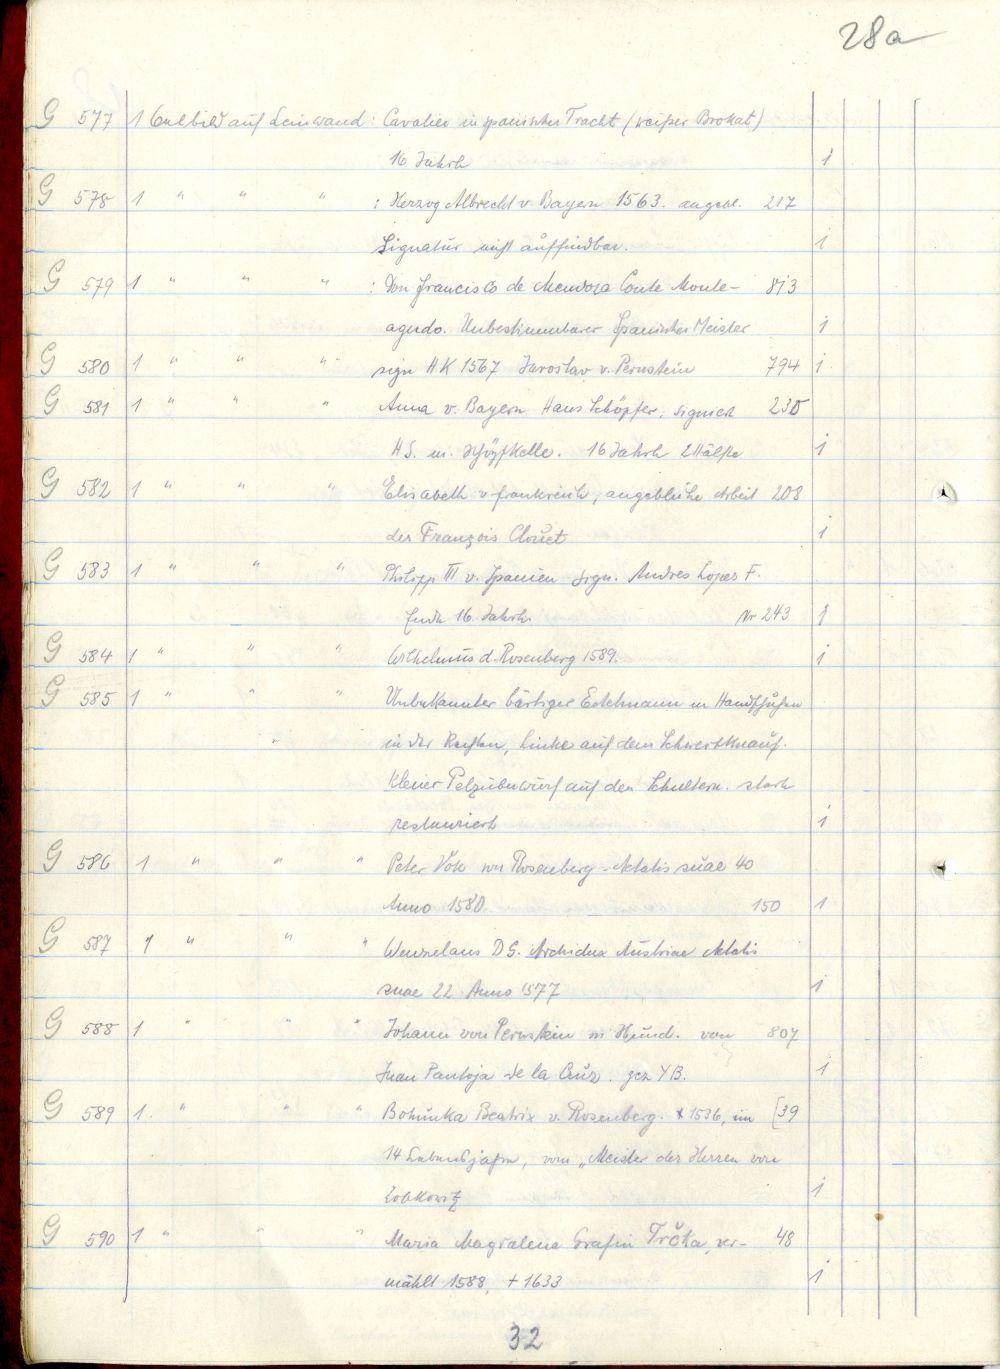 28a
G 577 1 Oelbild auf Leinwand : Cavalier in spanischer Tracht (weißer Brokat)
16 Jahrh 1
G 578 1 " " " : Herzog Albrecht v Bayern 1563. angebl. 217
Signatur nicht auffindbar. 1
G 579 1 " " " : Don Francisco de Mendoza Conte Monte- 813
agudo. Unbestimmbarer Spanischer Meister 1
G 580 1 " " " sign HK 1567 Jaroslav v. Pernstein 794 1
G 581 1 " " " Anna v. Bayern Hans Schöpfer, signiert 230
H S. m. Schöpfkelle. 16 Jahrh 2 Hälfte 1
G 582 1 " " " Elisabeth v Frankreich, angebliche Arbeit 208
des François Clouet 1
G 583 1 " " " Philipp III v. Spanien sign. Andres Lopes F.
Ende 16. Jahrh. Nr 243 1
G 584 1 " " " Wilhelmus d. Rosenberg 1589. 1
G 585 1 " " " Unbekannter bärtiger Edelmann m Handschuhen
" in der Rechten, Linke auf dem Schwertknauf.
Kleiner Pelzüberwurf auf den Schultern. stark
restauriert 1
G 586 1 " " " Peter Vok von Rosenberg - Aetatis suae 40
Anno 1580 150 1
G 587 1 " " " Wenzelaus D G. Archidux Austriae Aetatis
suae 22 Anno 1577 1
G 588 1 " " " Johann von Pernstein m Hund. von 807
Juan Pantoja de la Cruz. gez Y B. 1
G 589 1. " " " Bohunka Beatrix v. Rosenberg. * 1536, im [39
14 Lebensjahre, vom „Meister der Herren von
Lobkowitz 1
G 590 1 " " " Maria Magdalena Grafin Trčka, ver- 48
mählt 1588, + 1633 1
32